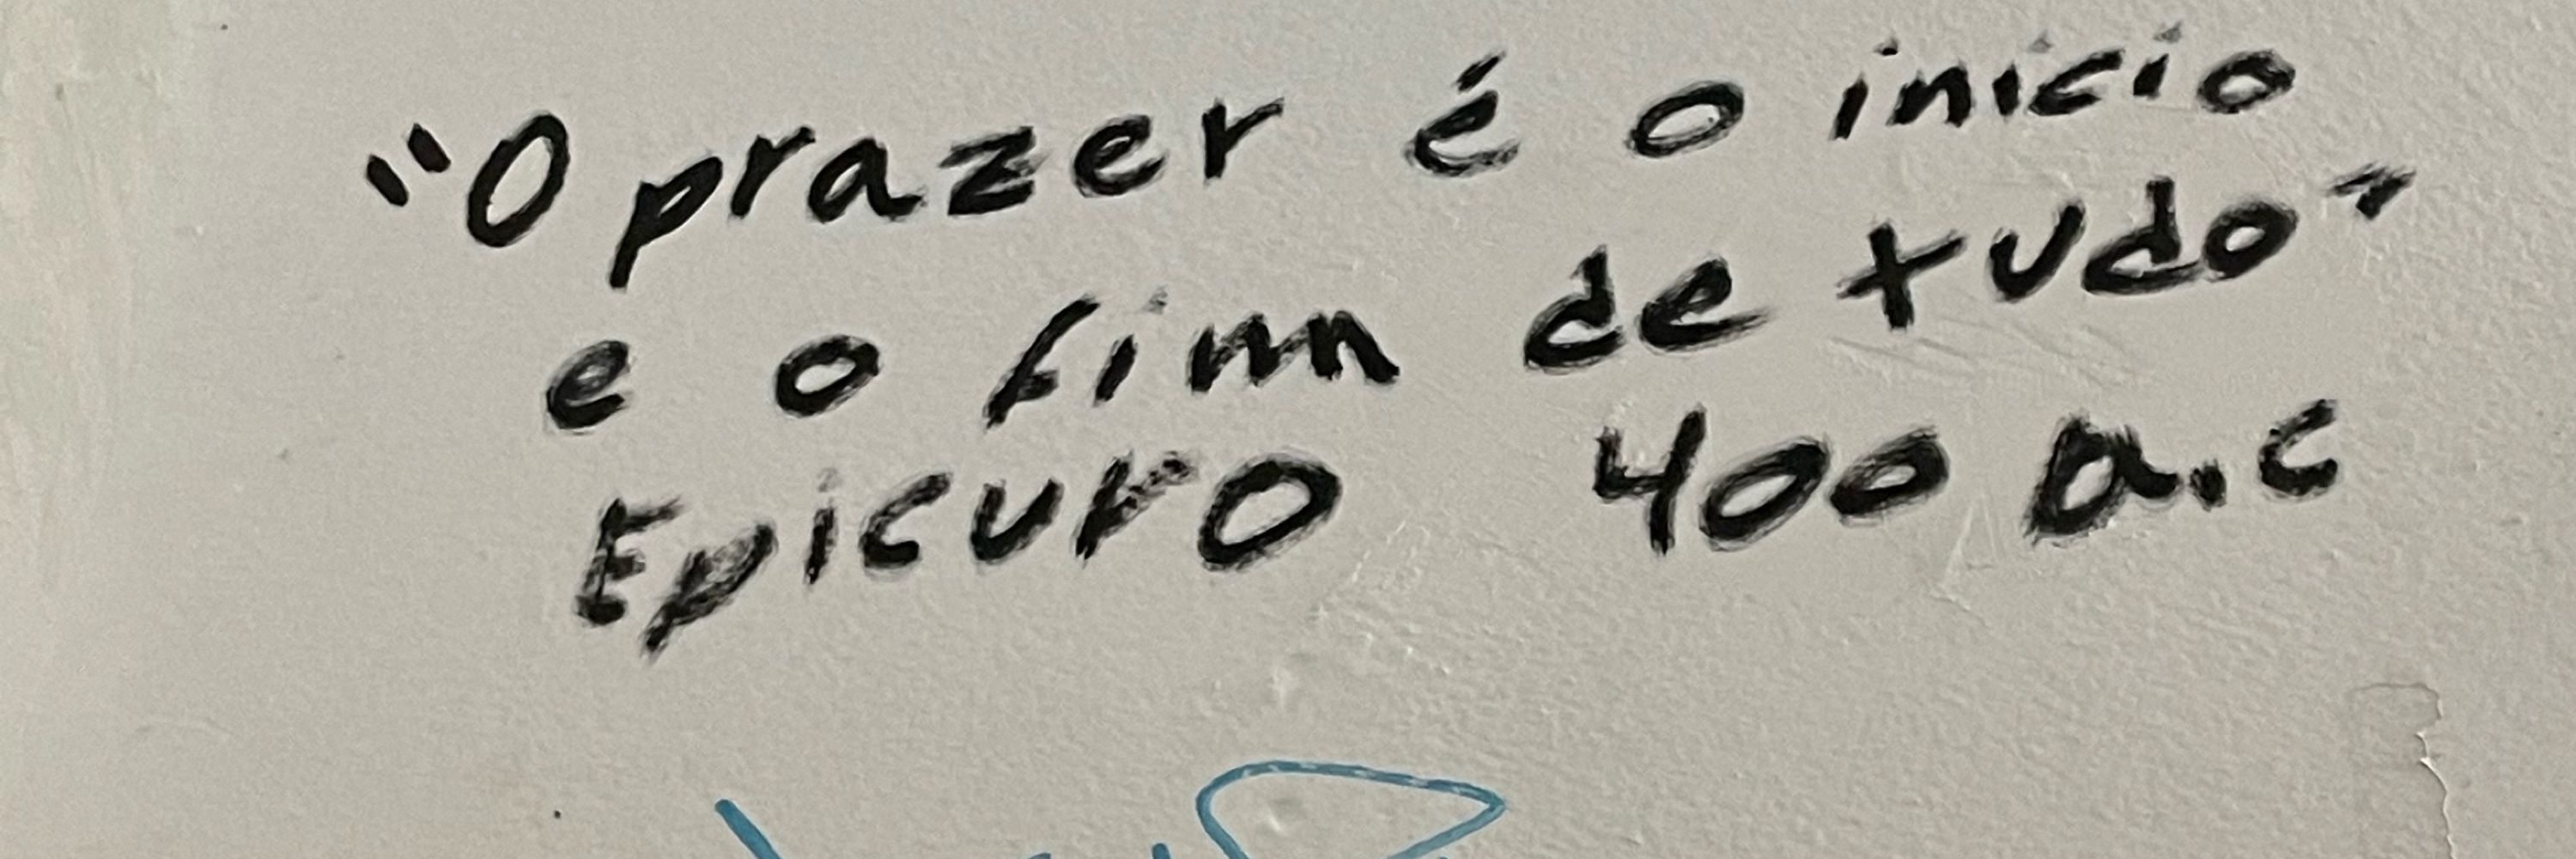 "O prazer é o inicio
e o fim de tudo"
Epicuro 400 a.c